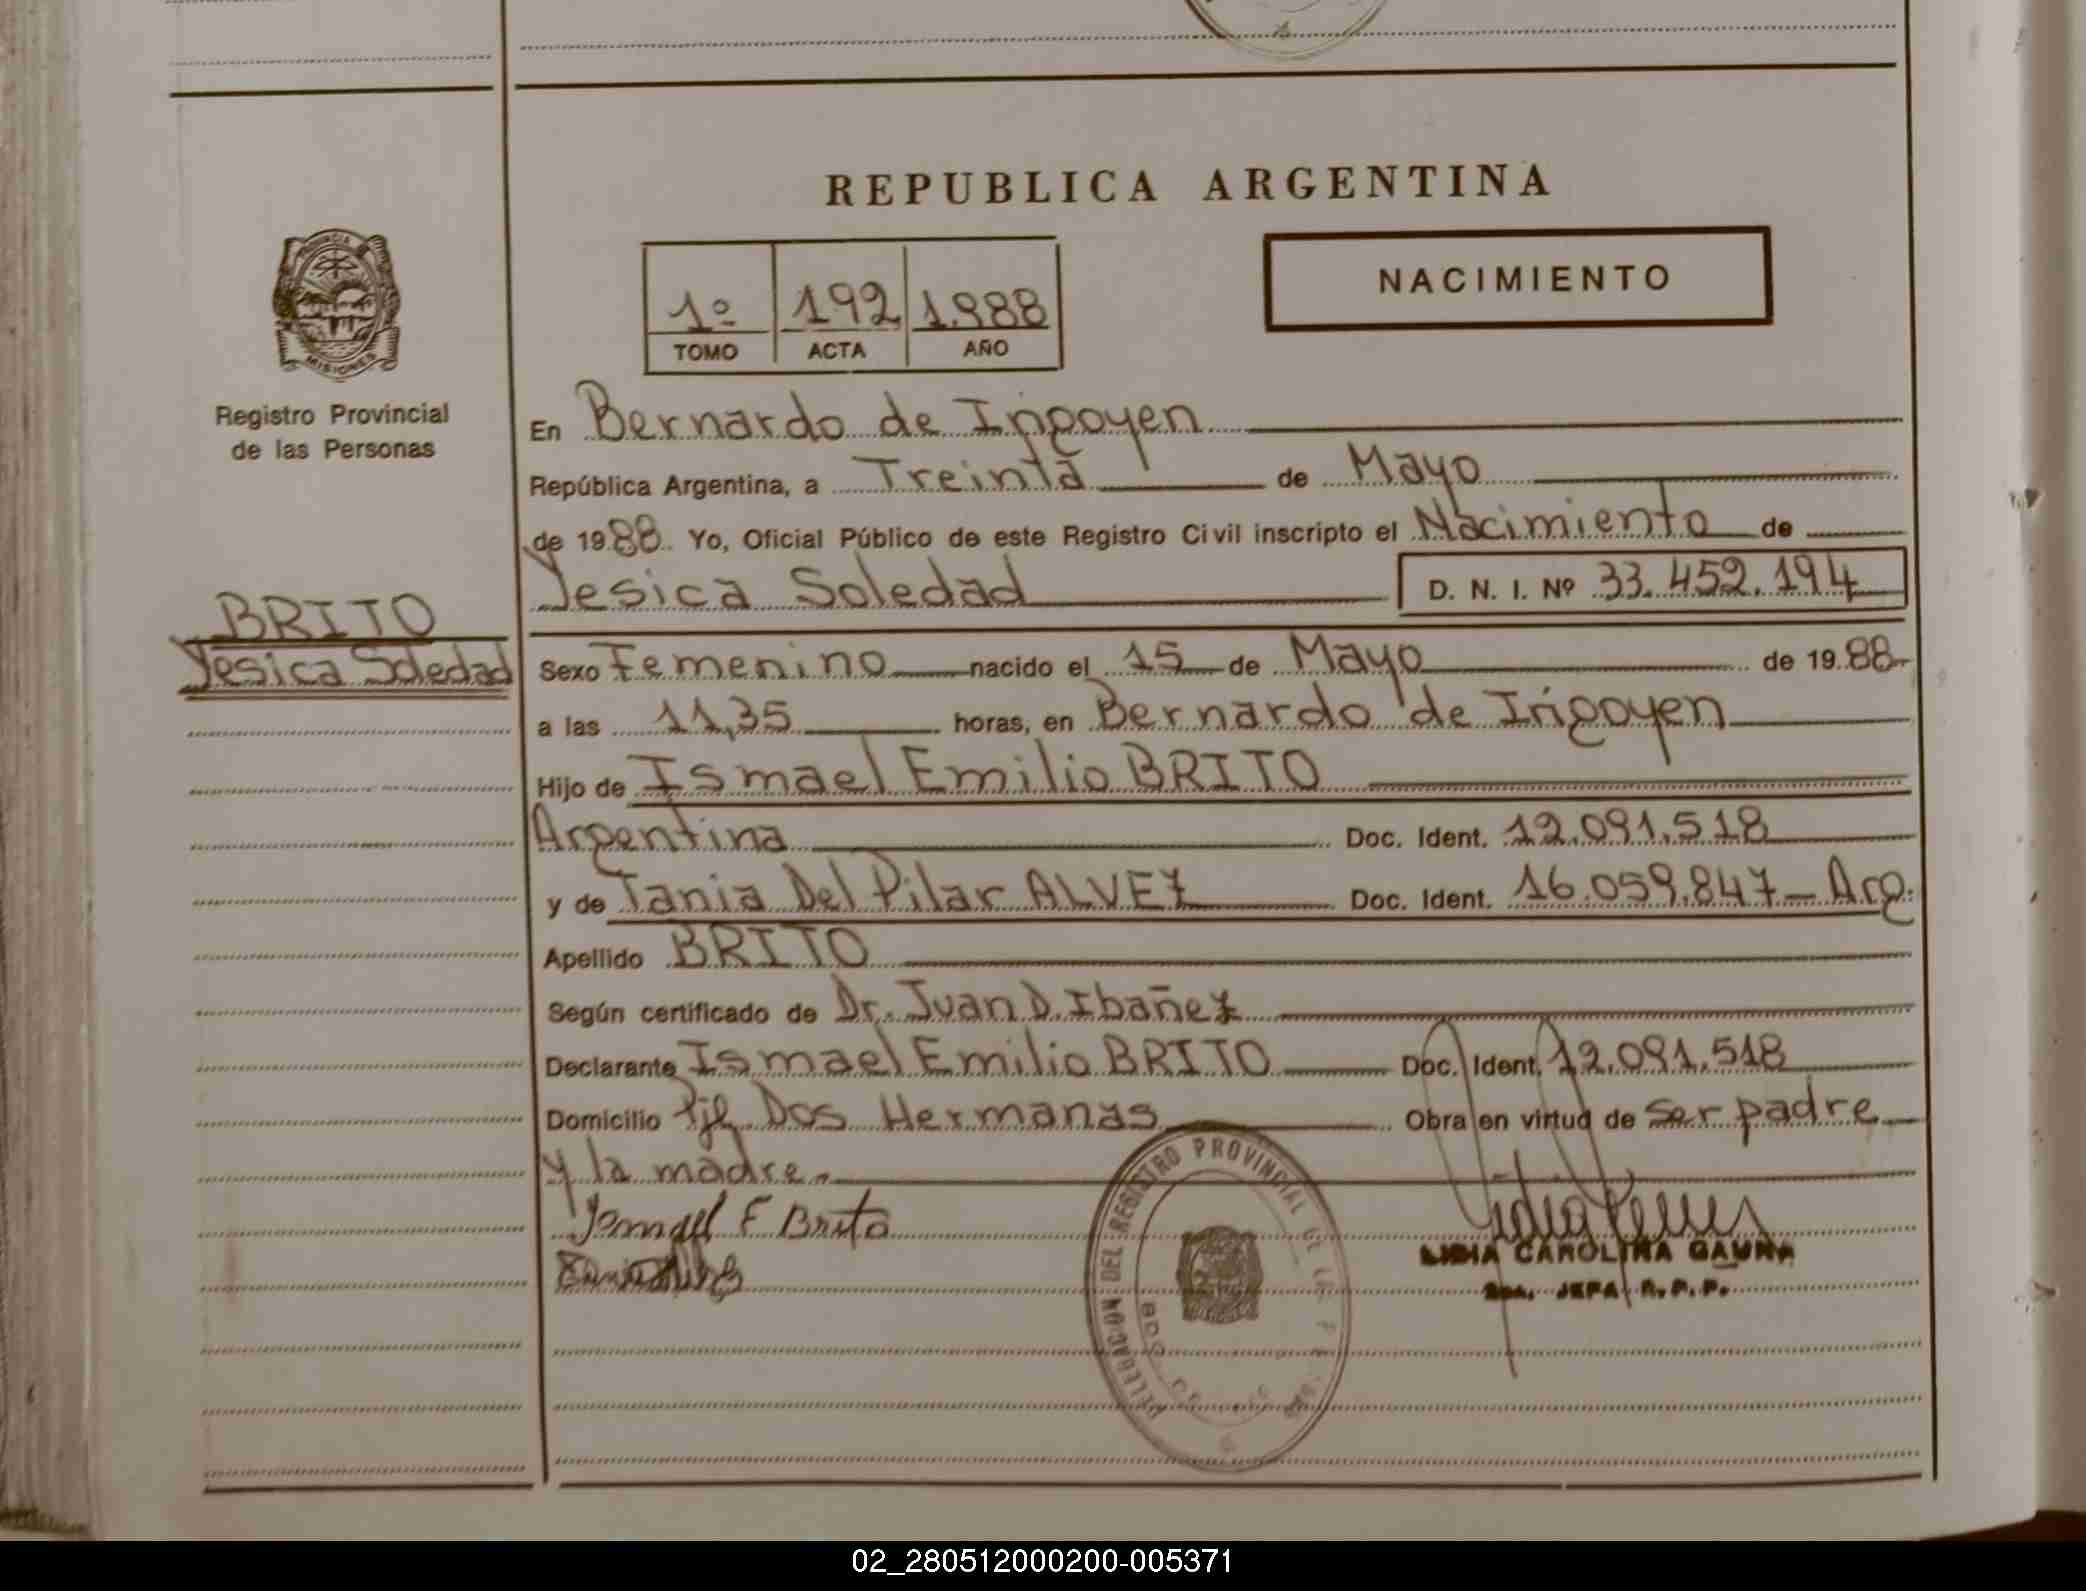 REPUBLICA ARGENTINA
NACIMIENTO
1º 192 1.988
TOMO ACTA AÑO
PROVINCIA
MISIONES
Registro Provincial
de las Personas
BRITO
Yesica Soledad
En Bernardo de Irigoyen
República Argentina, a Treinta de Mayo
de 1988. Yo, Oficial Público de este Registro Civil inscripto el Nacimiento de
Yesica Soledad D. N. I. Nº 33.452.194
Sexo Femenino nacido el 15 de Mayo de 1988
a las 11,35 horas, en Bernardo de Irigoyen
Hijo de Ismael Emilio BRITO
Argentina Doc. Ident. 12.091.518
y de Tania Del Pilar ALVEZ Doc. Ident. 16.059.847 - Arg.
Apellido BRITO
Según certificado de Dr. Juan D. Ibañez
Declarante Ismael Emilio BRITO Doc. Ident. 12.091.518
Domicilio Pje. Dos Hermanas Obra en virtud de ser padre
y la madre.
Ismael E Brito
LIDIA CAROLINA GAUNA
JEFA R.P.P.
DELEGACION DEL REGISTRO PROVINCIAL DE LAS
BDO
02_280512000200-005371